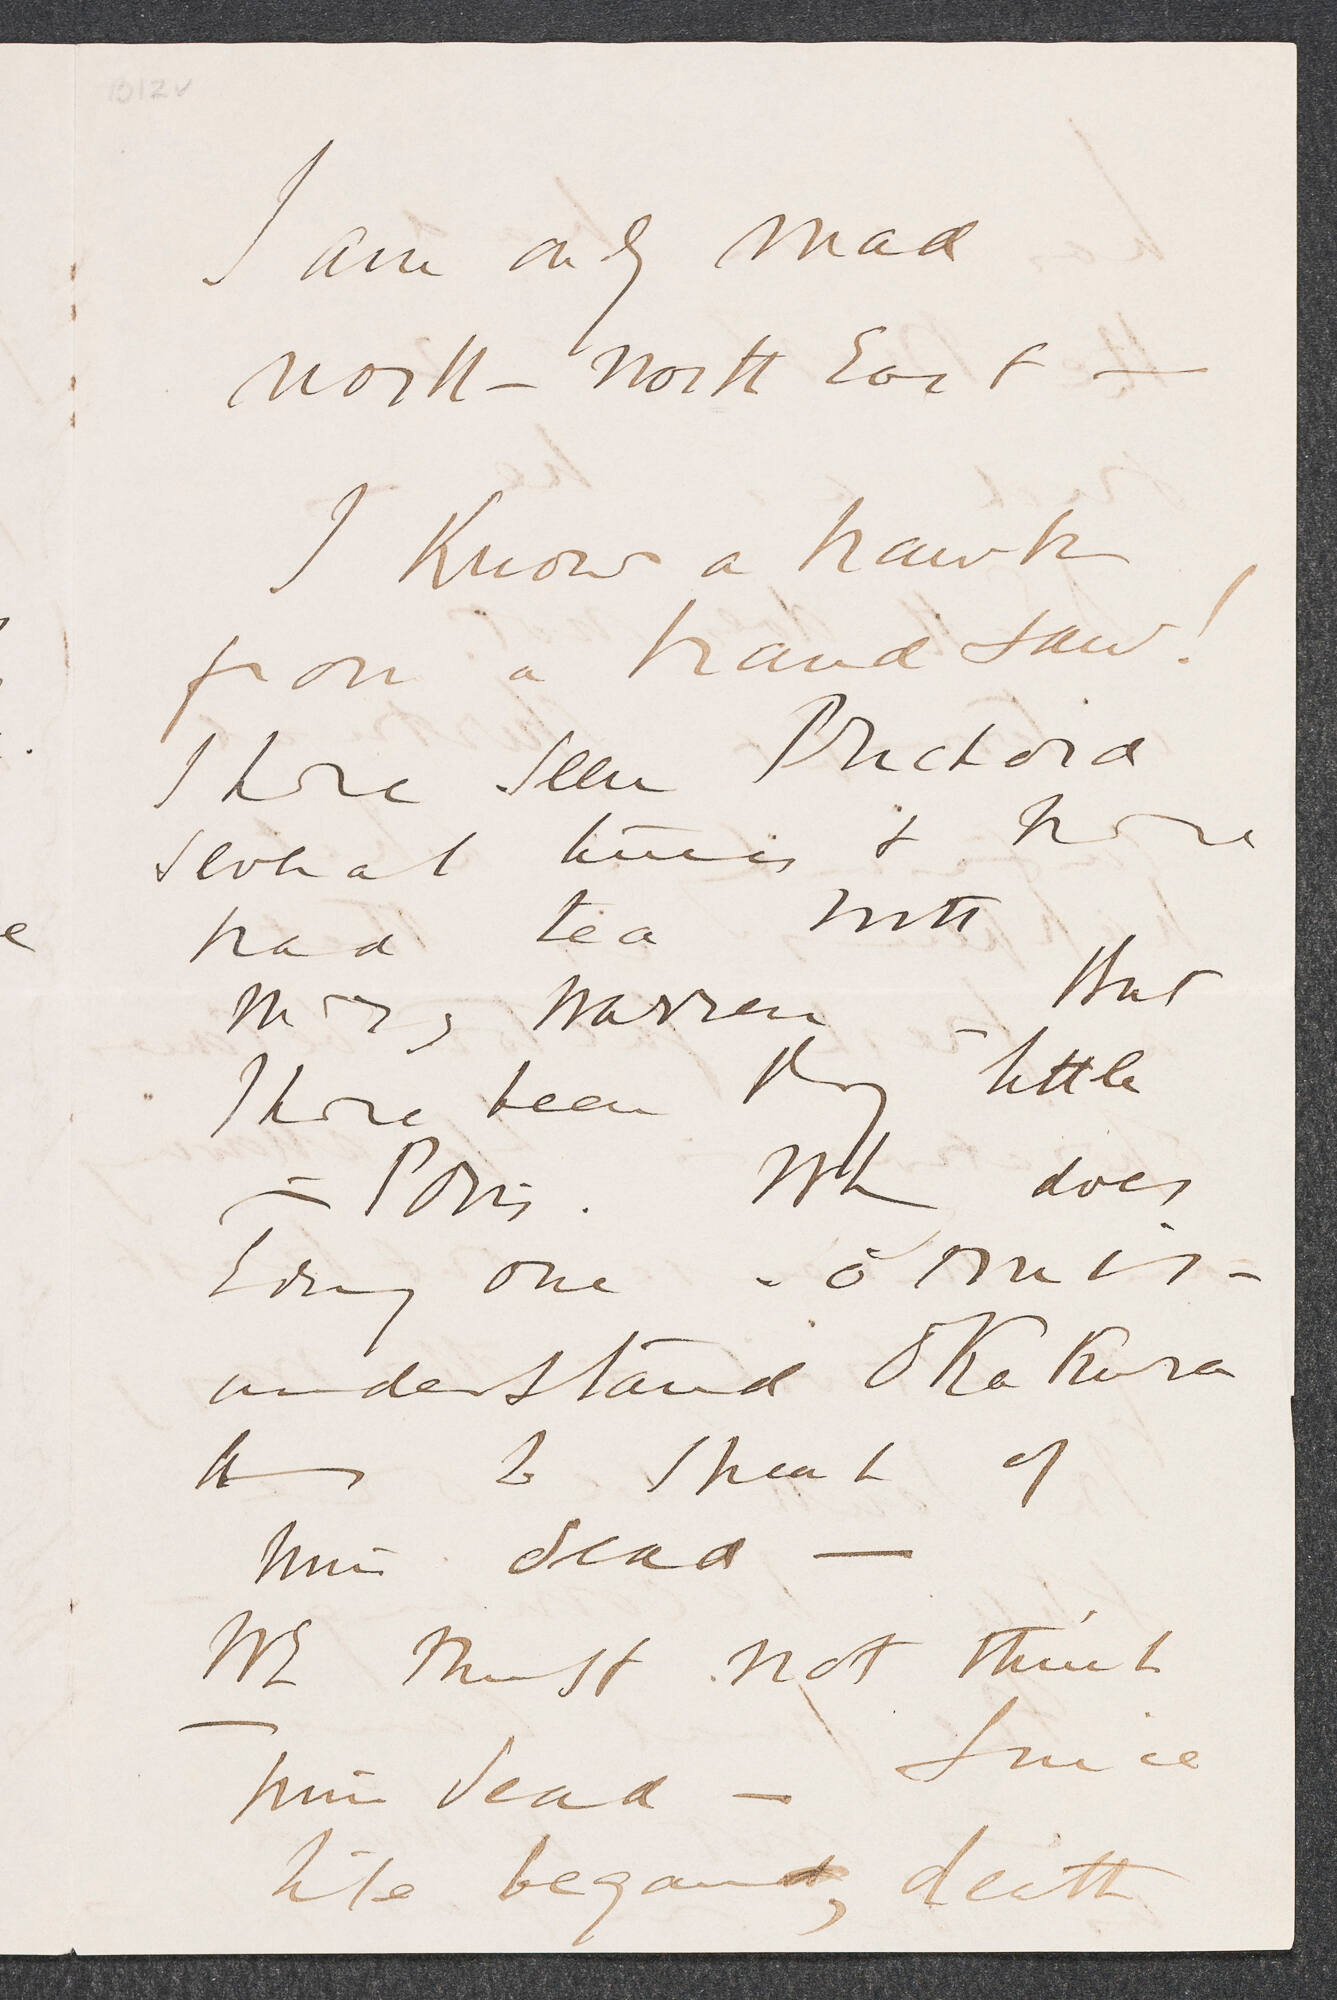 I am only mad
north - north East -
I know a hawk
from a hand saw!
I have seen Prichard
several times & have
had tea with
Mary Warren - But
I have been very little
in Paris. Why does
every one in America mis-
understand Okakura
has to speak of
him dead -
We must not think
him dead - Since
life began, death